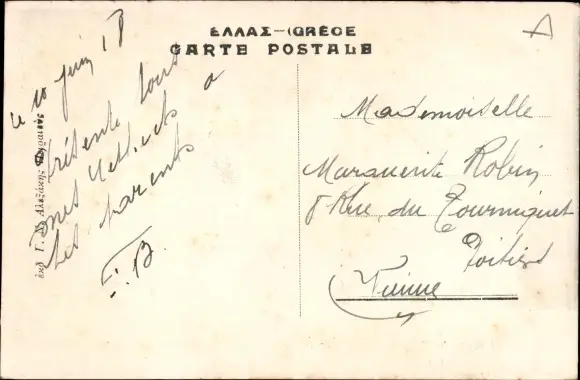 ΕΛΛΑΣ–GRÈCE
CARTE POSTALE
le 10 juin 18
Présente tous
mes respects à
tes parents
Mademoiselle
Marguerite Robin
8 Rue du Tourniquet
Poitiers
Vienne